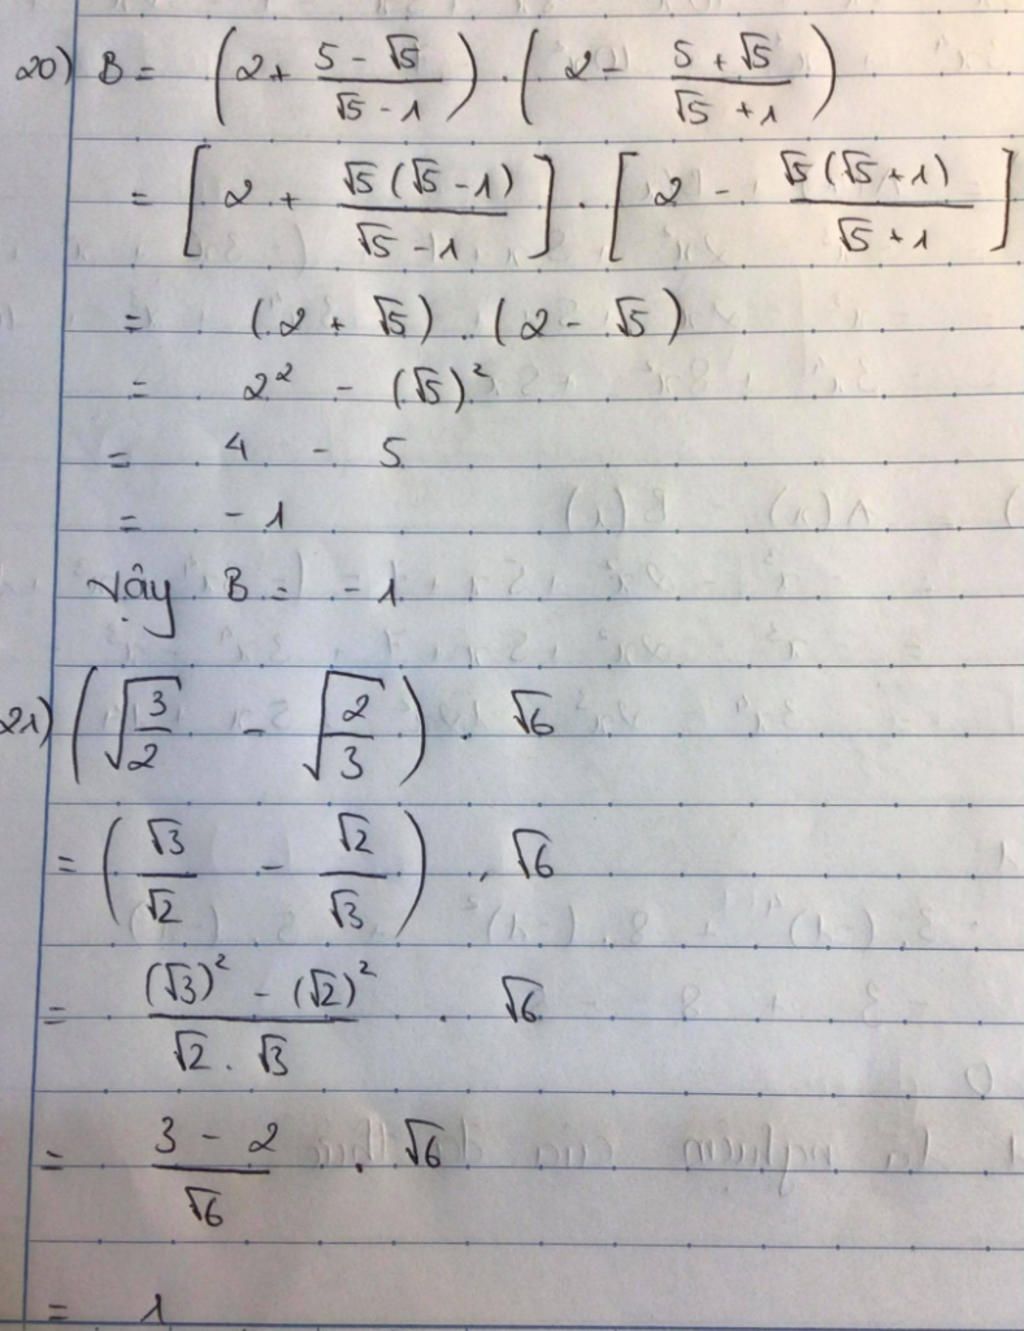 20) B = (2 + (5 - √5)/(√5 - 1)) . (2 - (5 + √5)/(√5 + 1))
= [2 + √5(√5 - 1)/(√5 - 1)] . [2 - √5(√5 + 1)/(√5 + 1)]
= (2 + √5) . (2 - √5)
= 2² - (√5)²
= 4 - 5
= -1
Vậy B = -1
21) (√(3/2) - √(2/3)) . √6
= (√3/√2 - √2/√3) . √6
= ((√3)² - (√2)²)/(√2 . √3) . √6
= (3 - 2)/√6 . √6
= 1